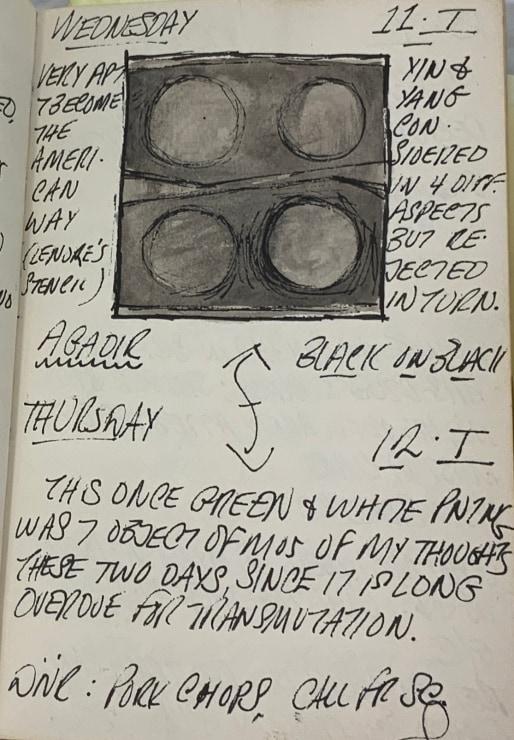 WEDNESDAY
11·I
VERY APT
T BECOME
THE
AMERI-
CAN
WAY
(LENORE'S
STENCIL)
YIN &
YANG
CON-
SIDERED
IN 4 DIFF.
ASPECTS
BUT RE-
JECTED
IN TURN.
AGADIR
BLACK ON BLACK
THURSDAY
12·I
THIS ONCE GREEN & WHITE PNTNG
WAS T OBJECT OF MOS OF MY THOUGHTS
THESE TWO DAYS, SINCE IT IS LONG
OVERDUE FOR TRANSMUTATION.
DNR: PORK CHOPS, CALL FR SG